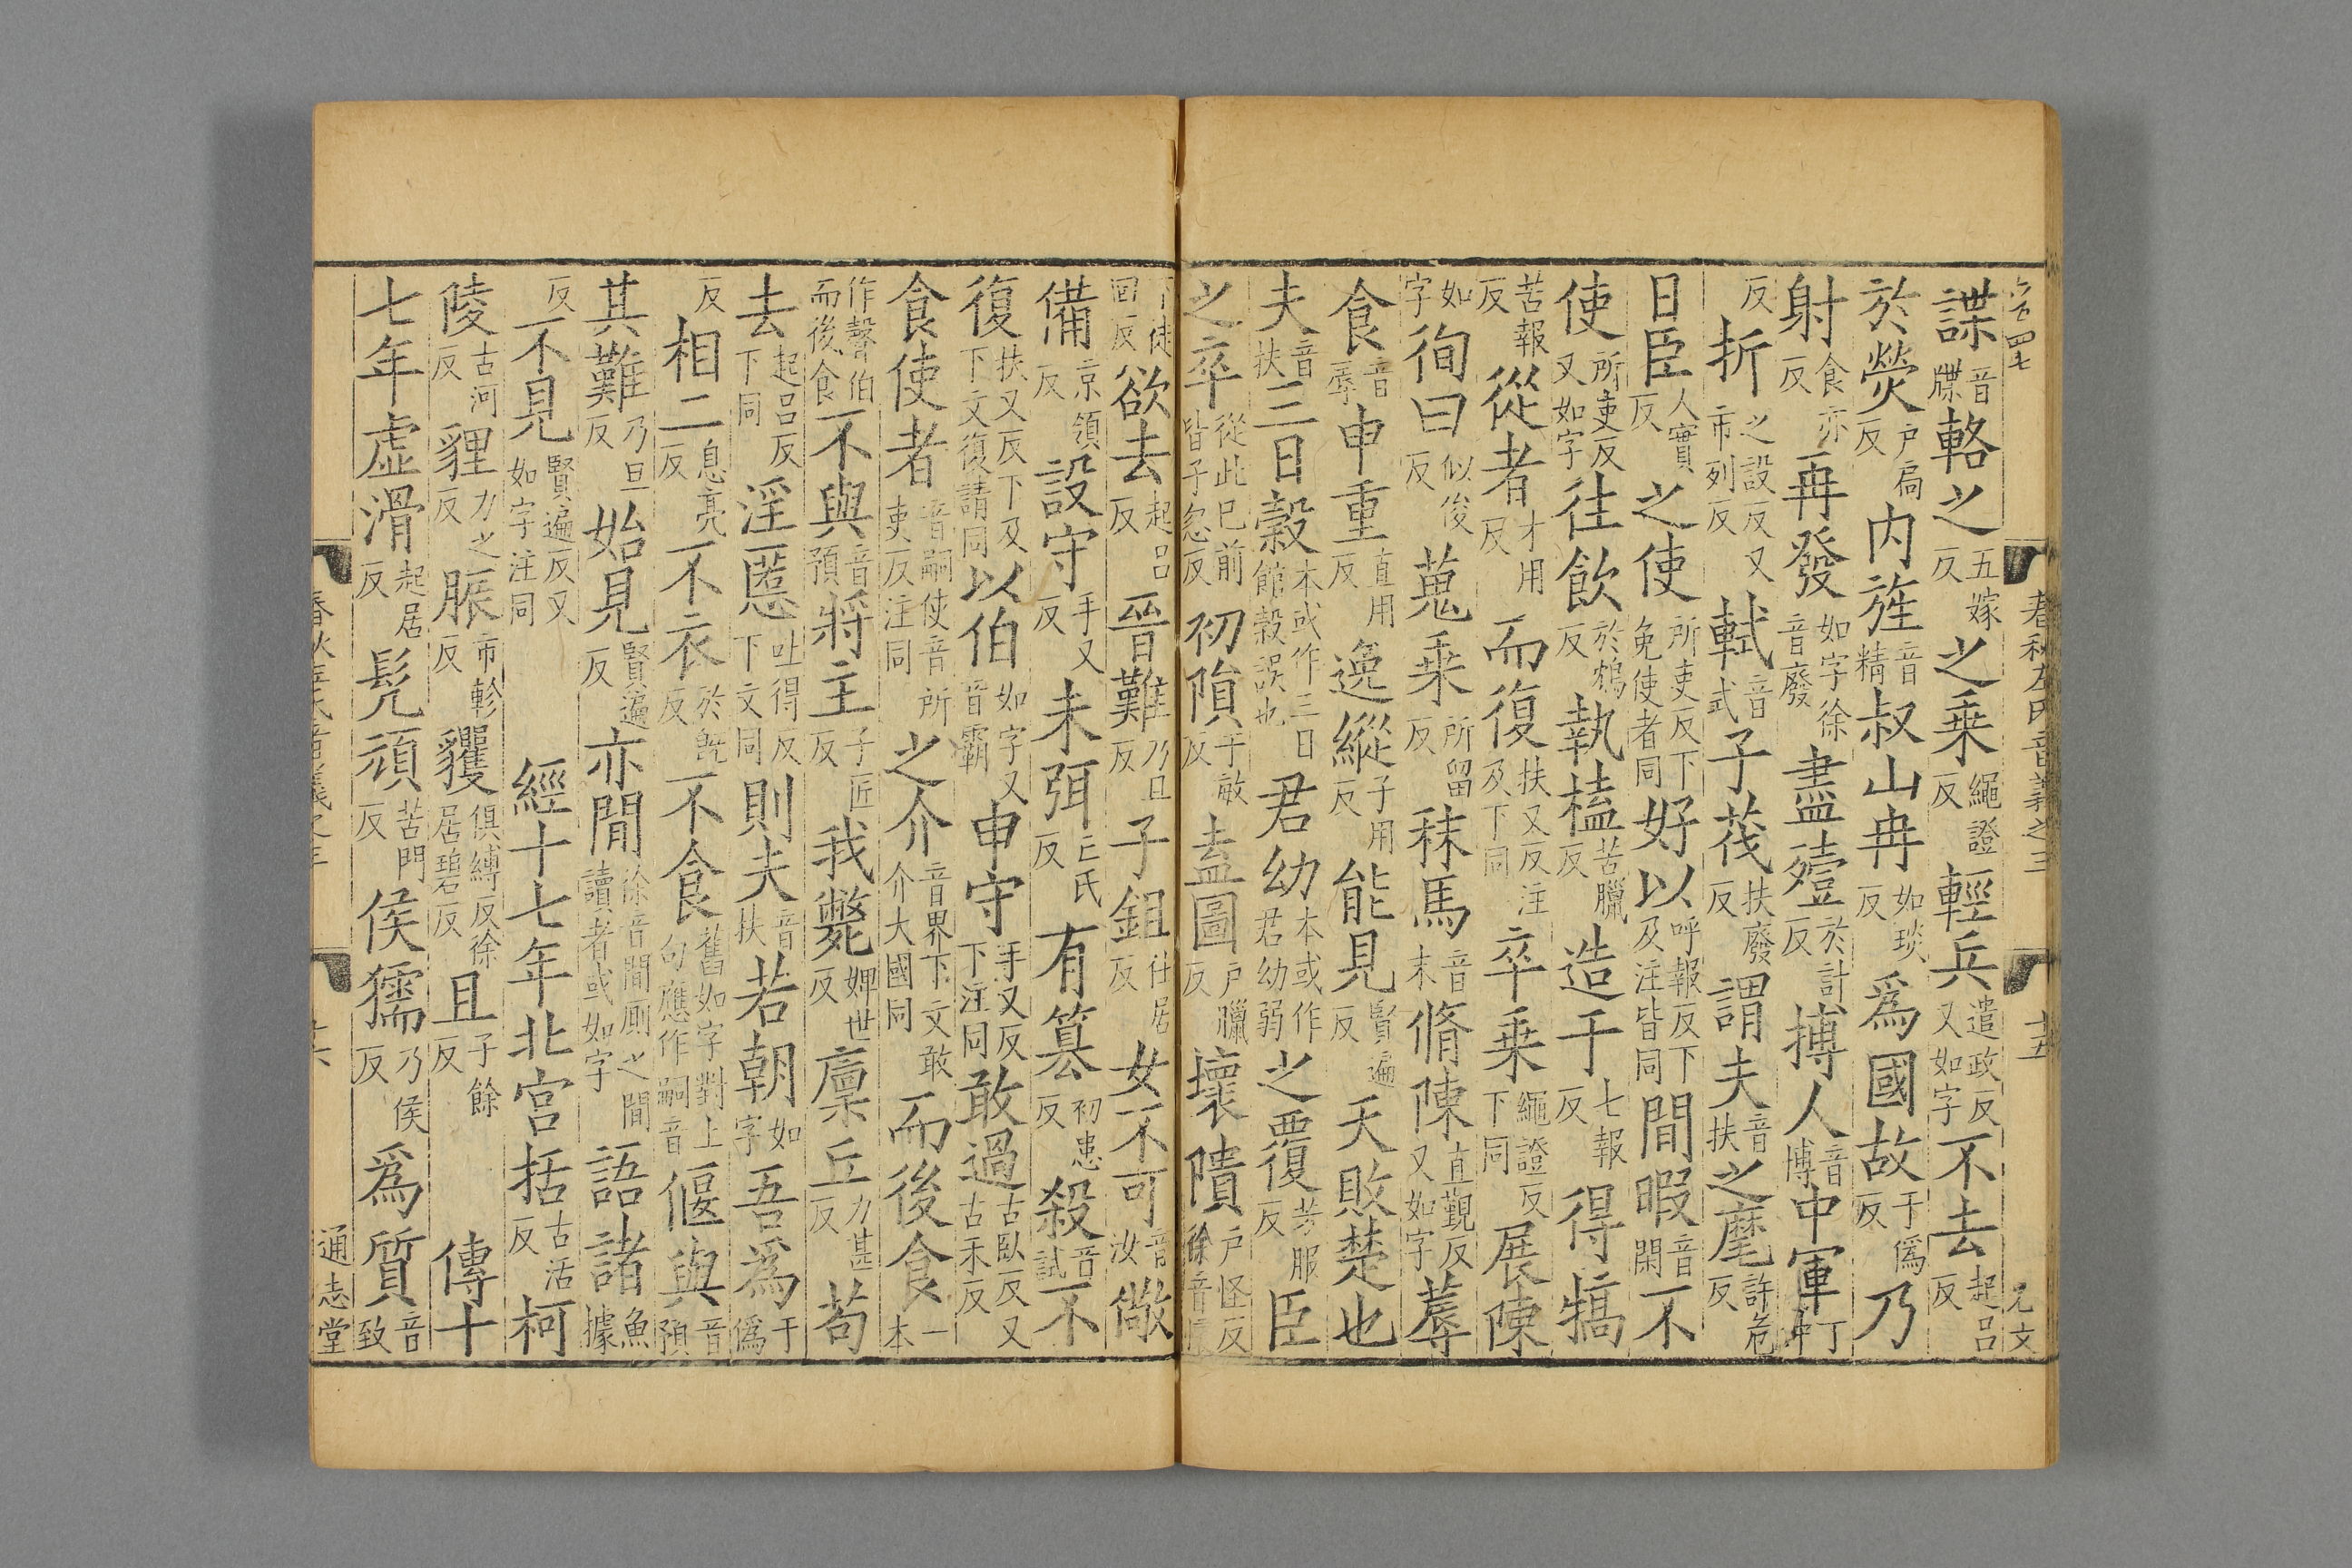 六百四七 春秋左氏音義之三 十五 元文
諜音牒輅之五嫁反之乗繩證反輕兵遣政反又如字不去起呂反
於熒户扃反内旌音精叔山冉如琰反爲國故于僞反乃
射食亦反再發如字徐音廢盡殪於計反搏人音博中軍丁仲
反折之設反又市列反軾音式子茷扶廢反謂夫音扶之麾許危反
日臣人實反之使所吏反下免使者同好以呼報反下及注皆同間暇音閑不
使所吏反又如字往飲於鴆反執榼苦臘反造于七報反得犒
苦報反從者才用反而復扶又反注及下同卒乗繩證反下同展陳
如字徇曰似俊反蒐乗所留反秣馬音末脩陳直覲反又如字蓐
食音辱申重直用反逸縱子用反能見賢遍反天敗楚也
夫音扶三日穀本或作三日館穀誤也君幼本或作君幼弱之覆芳服反臣
之卒從此已前皆子忽反初隕于敏反盍圖户臘反壞隤户怪反徐音
徒回反欲去起呂反晉難乃旦反子鉏仕居反女不可音汝儆
備京領反設守手又反未弭亡氏反有簒初患反殺音試不
復扶又反下及下文復請同以伯如字又音霸申守手又反下注同敢過古臥反又古禾反
食使者音嗣使音所吏反注同之介音界下文敢介大國同而後食一本
作聲伯而後食不與音預將主子匠反我斃婢世反廩丘力甚反苟
去起呂反下同淫慝吐得反下文同則夫音扶若朝如字吾爲于僞
反相二息亮反不衣於旣反不食舊如字對上句應作嗣音偃與音預
其難乃旦反始見賢遍反亦間徐音間厠之間讀者或如字語諸魚據
反不見賢遍反又如字注同 經十七年北宫括古活反柯
陵古河反貍力之反脤市軫反貜俱縛反徐居碧反且子餘反 傳十
七年虚滑起居反髠頑苦門反侯獳乃侯反爲質音致
十六 通志堂